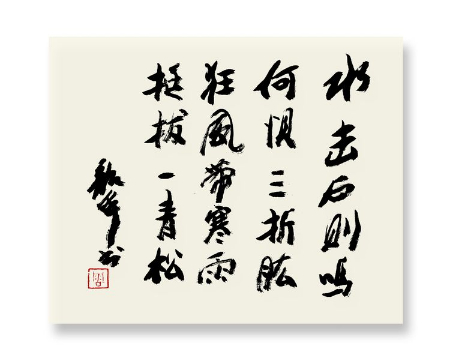 水击石则鸣
何惧三折肱
狂风带寒雨
挺拔一青松